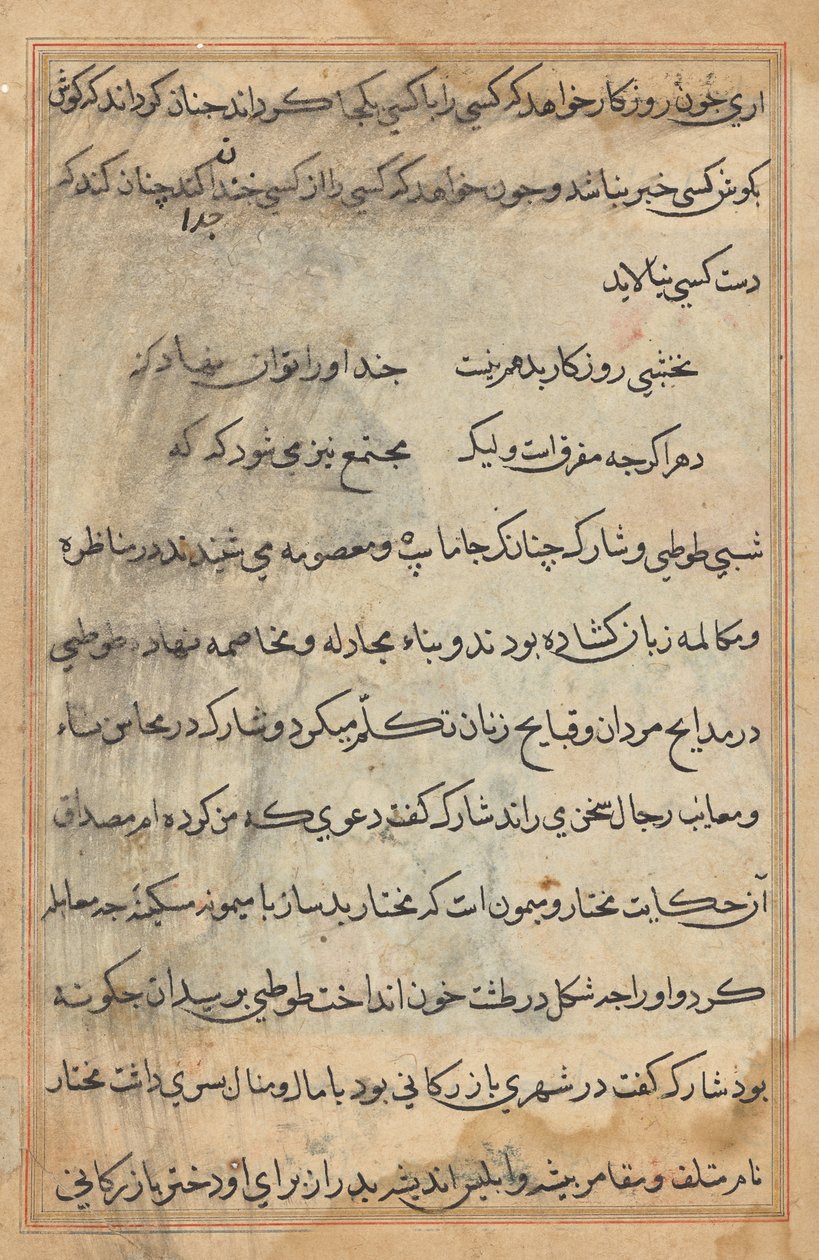 اري جون روزكار خواهد كه كسي را با كسي يكجا كرداند جنان كرداند كه كوش
بكوش كسي خبر نباشد و جون خواهد كه كسي را از كسي خندا كند چنان كند كه
ن
جدا
دست كسي نيالايد
نخشبي روزكار بدهر نيست جند او را توان نهاد كه
دهر اكرجه مفرق است وليك مجتمع نيز مي شود كه كه
شبي طوطي و شارك چنانك جاماسپ و معصومه مي شنيدند در مناظره
و مكالمه زبان كشاده بودند و بناء مجادله و مخاصمه نهاده طوطي
در مدايح مردان و قبايح زنان تكلّم ميكرد و شارك در محاسن نساء
و معايب رجال سخن مي راند شارك كفت دعوي كه من كرده ام مصداق
آن حكايت مختار و ميمون است كه مختار بد ساز با ميمونه مسكينه جه معامله
كرد و او را جه شكل در طشت خون انداخت طوطي برسيد ان جكونه
بود شارك كفت در شهري بازركاني بود با مال و منال بسري داشت مختار
نام متلف و مقامر بيشه و ابليس انديشه بدر از براي او دختر بازركاني